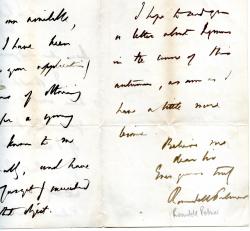 own available,
I have been
your application)
of obtaining
for a young
known to me
and have
succeeded
object.
I hope to send you
a letter about Hymns
in the course of this
autumn, as soon as I
have a little more
leisure.
Believe me
dear Sir
Ever yours truly
Roundell Palmer
Roundell Palmer